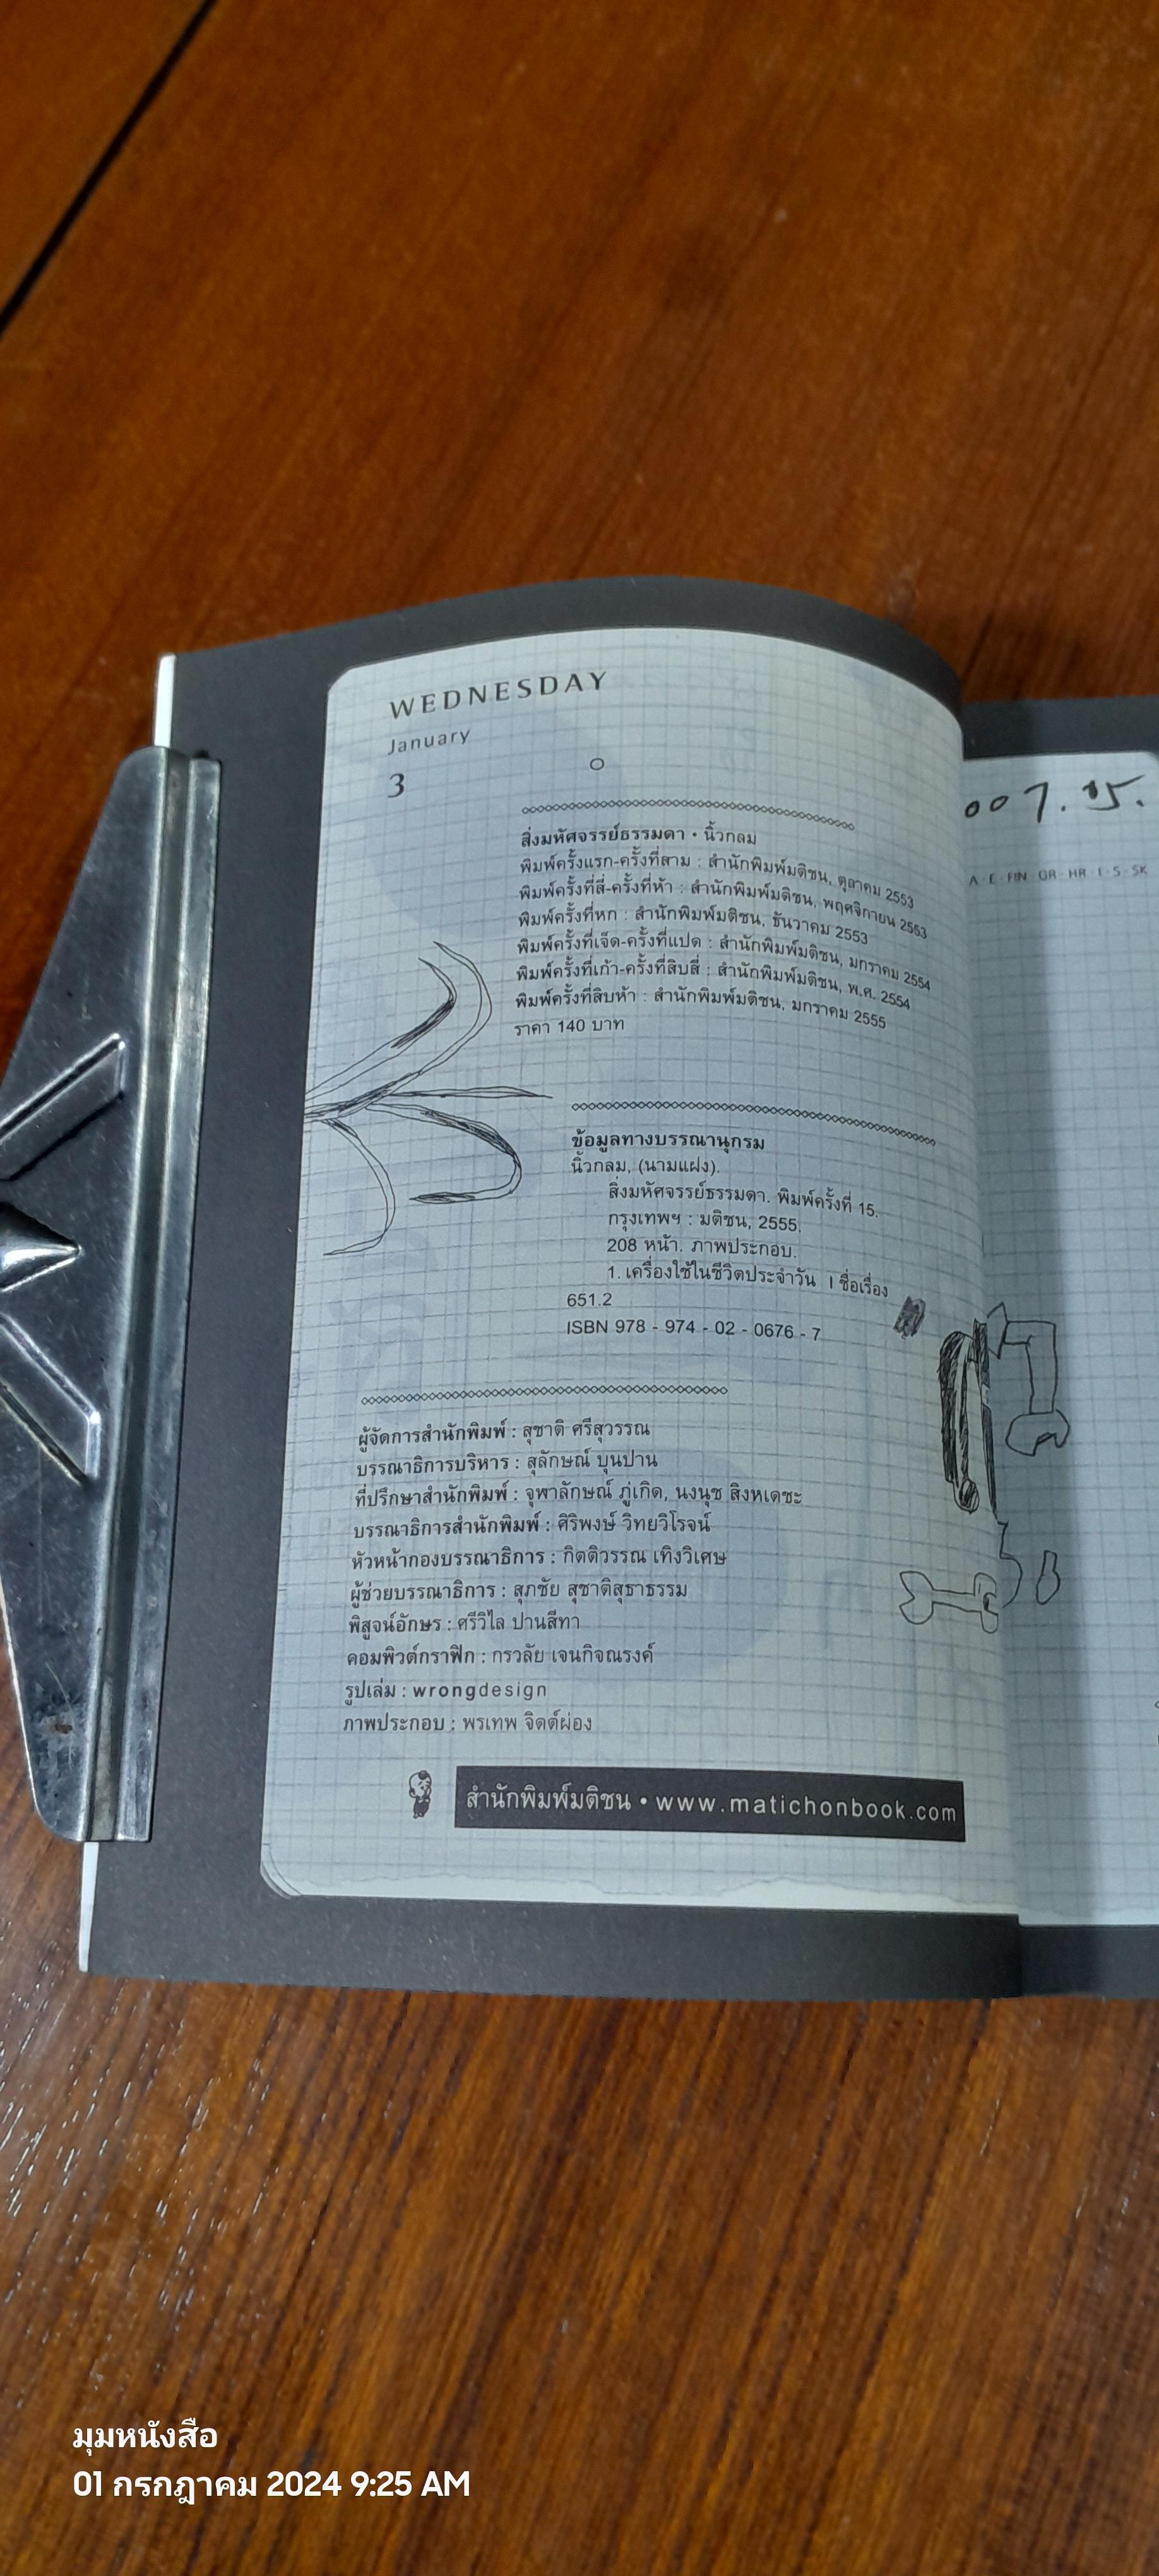 WEDNESDAY
January
3
สิ่งมหัศจรรย์ธรรมดา • นิ้วกลม
พิมพ์ครั้งแรก-ครั้งที่สาม : สำนักพิมพ์มติชน, ตุลาคม 2553
พิมพ์ครั้งที่สี่-ครั้งที่ห้า : สำนักพิมพ์มติชน, พฤศจิกายน 2553
พิมพ์ครั้งที่หก : สำนักพิมพ์มติชน, ธันวาคม 2553
พิมพ์ครั้งที่เจ็ด-ครั้งที่แปด : สำนักพิมพ์มติชน, มกราคม 2554
พิมพ์ครั้งที่เก้า-ครั้งที่สิบสี่ : สำนักพิมพ์มติชน, พ.ศ. 2554
พิมพ์ครั้งที่สิบห้า : สำนักพิมพ์มติชน, มกราคม 2555
ราคา 140 บาท
ข้อมูลทางบรรณานุกรม
นิ้วกลม, (นามแฝง).
สิ่งมหัศจรรย์ธรรมดา. พิมพ์ครั้งที่ 15.
กรุงเทพฯ : มติชน, 2555.
208 หน้า. ภาพประกอบ.
1. เครื่องใช้ในชีวิตประจำวัน I ชื่อเรื่อง
651.2
ISBN 978 - 974 - 02 - 0676 - 7
ผู้จัดการสำนักพิมพ์ : สุชาติ ศรีสุวรรณ
บรรณาธิการบริหาร : สุลักษณ์ บุนปาน
ที่ปรึกษาสำนักพิมพ์ : จุฬาลักษณ์ ภู่เกิด, นงนุช สิงหเดชะ
บรรณาธิการสำนักพิมพ์ : ศิริพงษ์ วิทยวิโรจน์
หัวหน้ากองบรรณาธิการ : กิตติวรรณ เทิงวิเศษ
ผู้ช่วยบรรณาธิการ : สุภชัย สุชาติสุธาธรรม
พิสูจน์อักษร : ศรีวิไล ปานสีทา
คอมพิวต์กราฟิก : กรวลัย เจนกิจณรงค์
รูปเล่ม : wrongdesign
ภาพประกอบ : พรเทพ จิตต์ผ่อง
สำนักพิมพ์มติชน • www.matichonbook.com
A · E · FIN · GR · HR · I · S · SK
มุมหนังสือ
01 กรกฎาคม 2024 9:25 AM